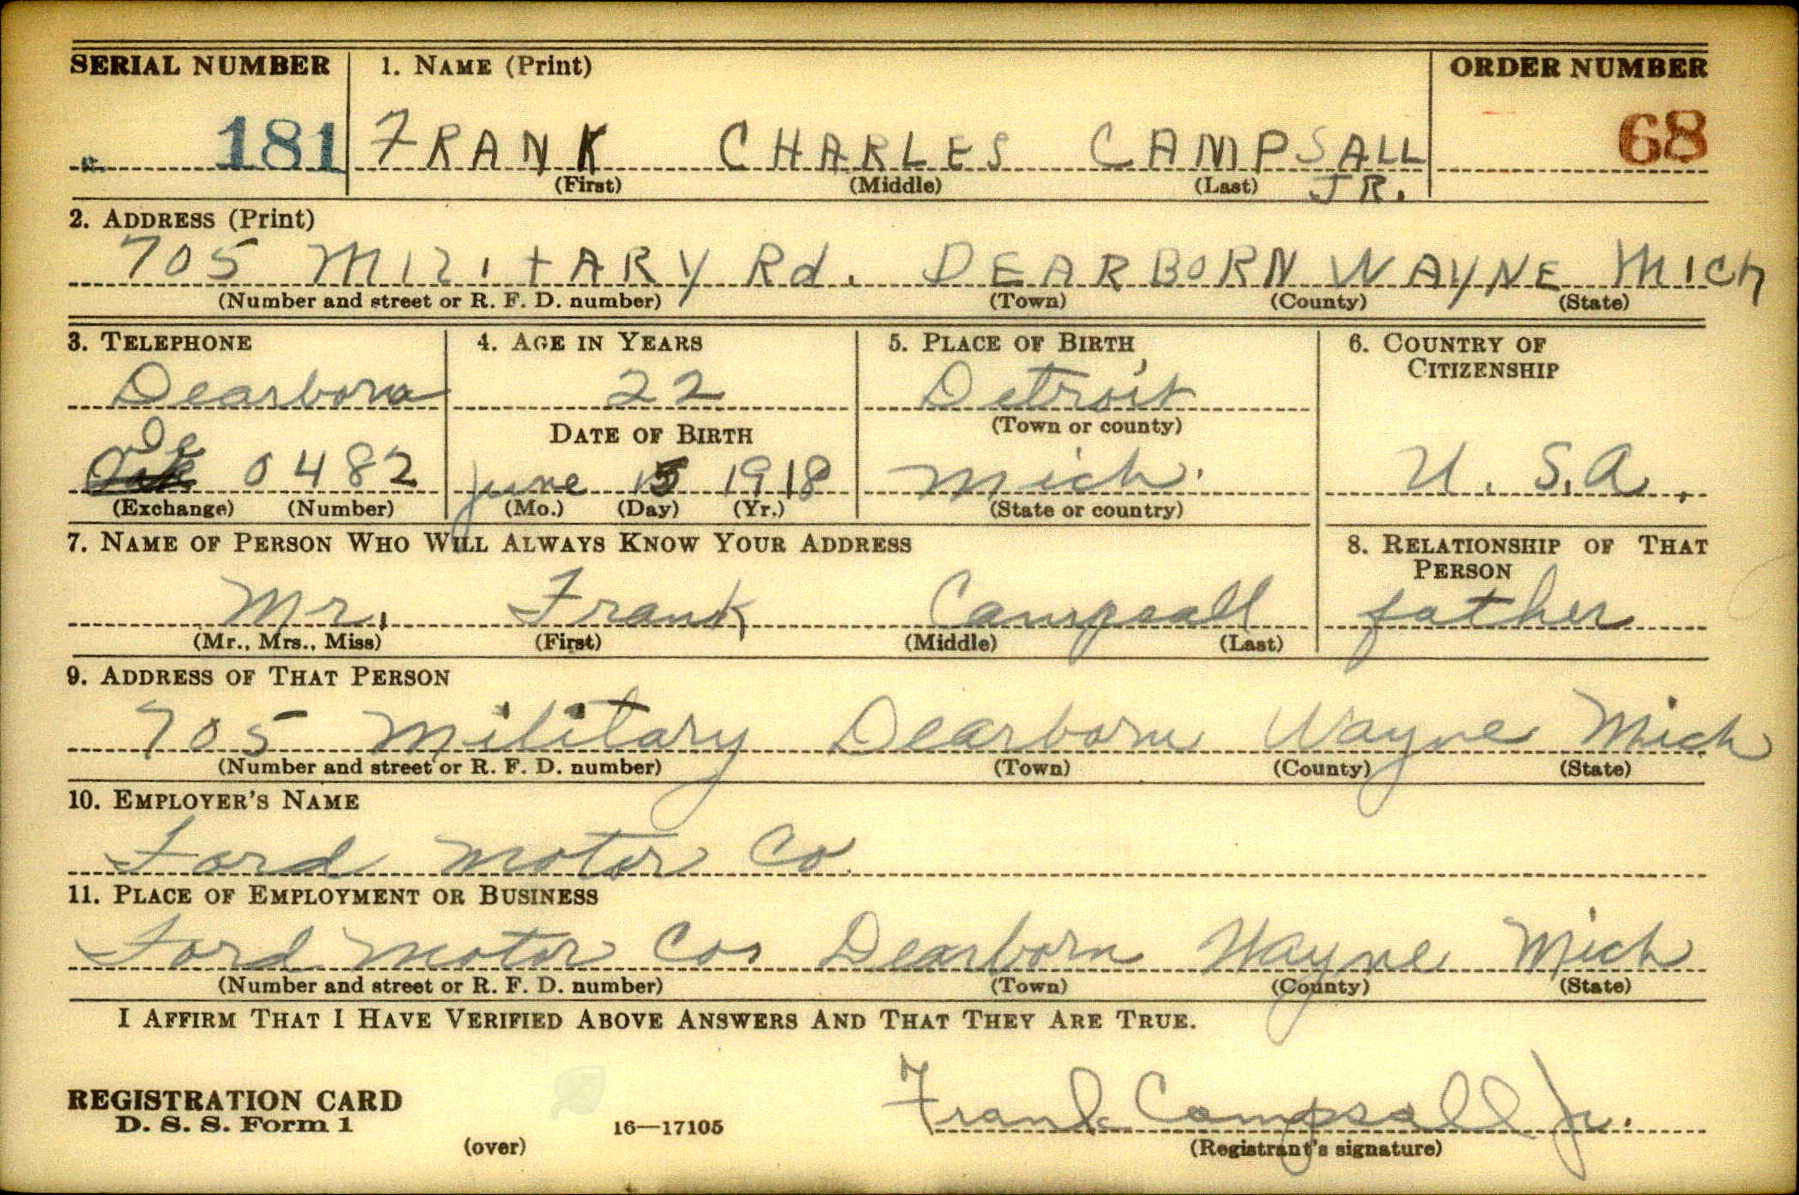 SERIAL NUMBER 1. NAME (Print) ORDER NUMBER
181 FRANK CHARLES CAMPSALL 68
(First) (Middle) (Last) JR.
2. ADDRESS (Print)
705 MILITARY Rd. DEARBORN WAYNE MICh
(Number and street or R. F. D. number) (Town) (County) (State)
3. TELEPHONE 4. AGE IN YEARS 5. PLACE OF BIRTH 6. COUNTRY OF CITIZENSHIP
Dearborn 22 Detroit
DATE OF BIRTH (Town or county)
De
0482 June 15 1918 Mich. U.S.A.
(Exchange) (Number) (Mo.) (Day) (Yr.) (State or country)
7. NAME OF PERSON WHO WILL ALWAYS KNOW YOUR ADDRESS 8. RELATIONSHIP OF THAT PERSON
Mr. Frank Campsall father
(Mr., Mrs., Miss) (First) (Middle) (Last)
9. ADDRESS OF THAT PERSON
705 Military Dearborn Wayne Mich
(Number and street or R. F. D. number) (Town) (County) (State)
10. EMPLOYER'S NAME
Ford Motor Co.
11. PLACE OF EMPLOYMENT OR BUSINESS
Ford Motor Co. Dearborn Wayne Mich
(Number and street or R. F. D. number) (Town) (County) (State)
I AFFIRM THAT I HAVE VERIFIED ABOVE ANSWERS AND THAT THEY ARE TRUE.
REGISTRATION CARD Frank Campsall Jr.
D. S. S. Form 1
(over) 16—17105 (Registrant's signature)